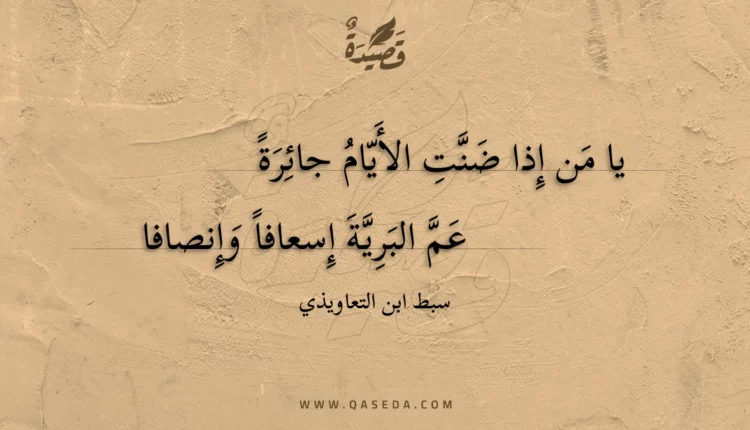 قَصِيدَةٌ
يا مَن إِذا ضَنَّتِ الأَيّامُ جائِرَةً
عَمَّ البَرِيَّةَ إِسعافاً وَإِنصافا
سبط ابن التعاويذي
WWW.QASEDA.COM